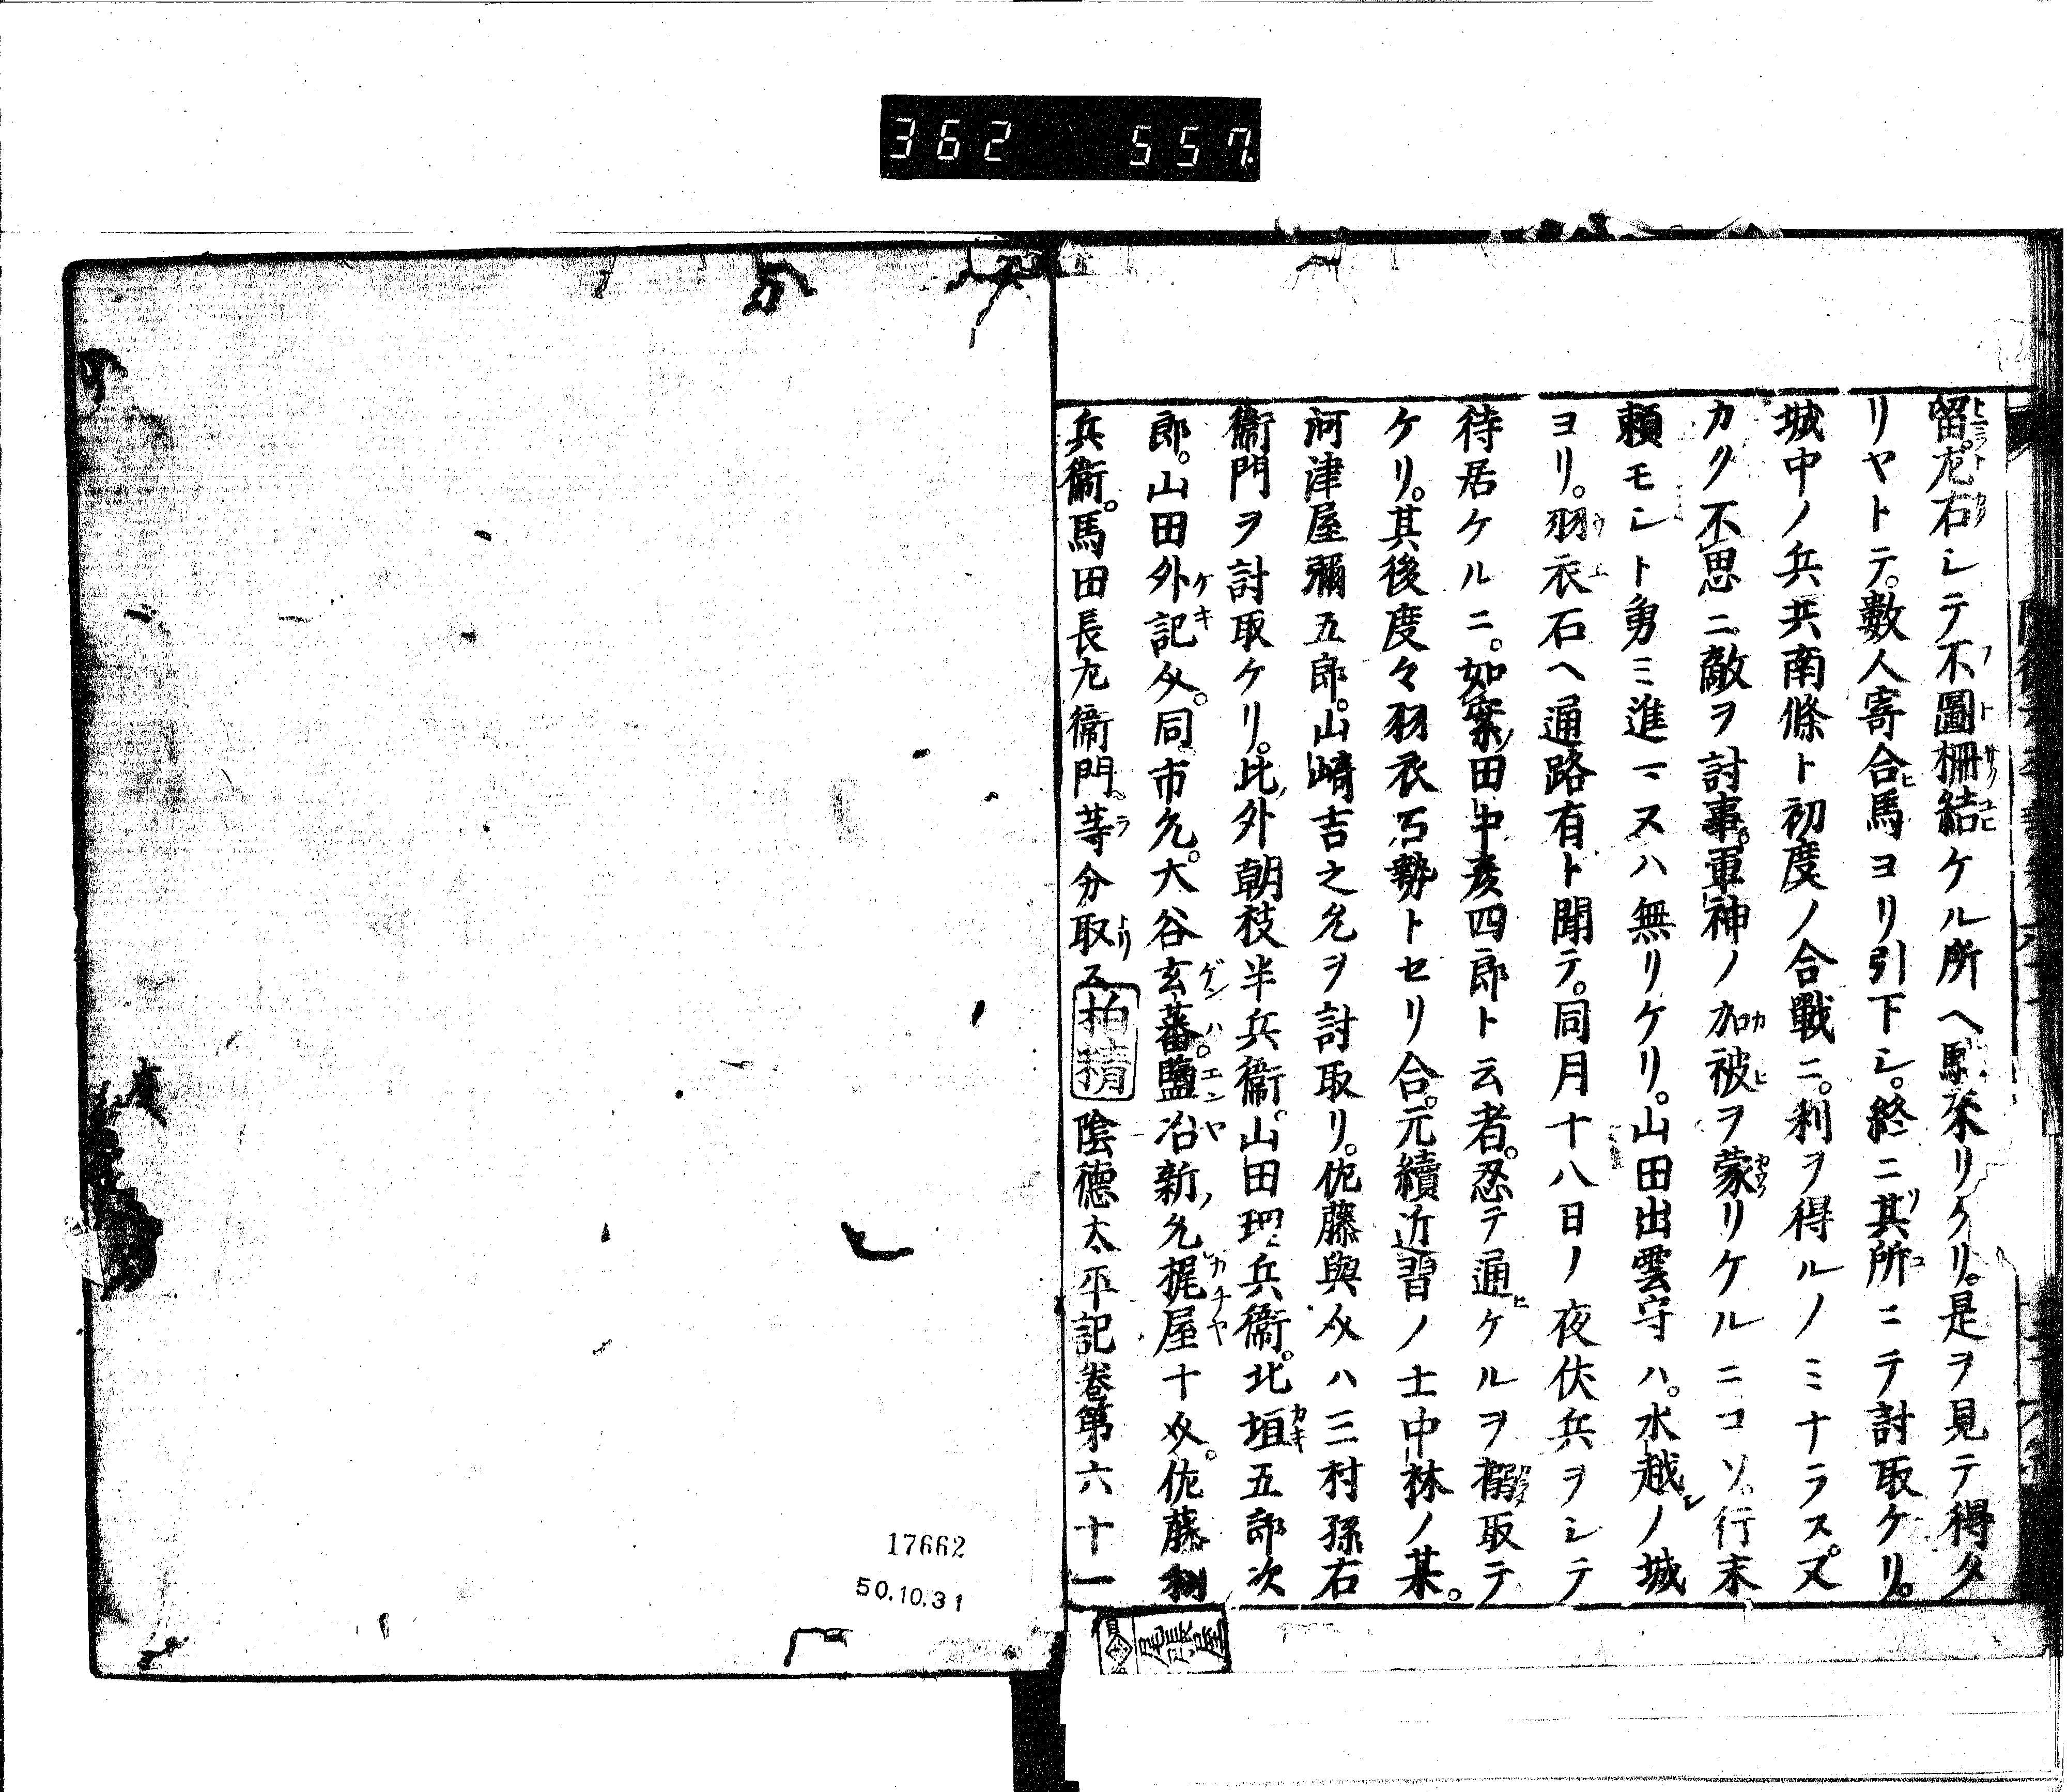 362 557
留。左右シテ不圖柵結ケル所ヘ駈來リケリ。是ヲ見テ得タ
リヤトテ。數人寄合馬ヨリ引下シ。終ニ其所ニテ討取ケリ。
城中ノ兵共南條ト初度ノ合戰ニ。利ヲ得ルノミナラス。又
カク不思ニ敵ヲ討事。軍神ノ加被ヲ蒙リケルニコソ。行末
頼モシト勇ミ進マヌハ無リケリ。山田出雲守ハ。水越ノ城
ヨリ。羽衣石ヘ通路有ト聞テ。同月十八日ノ夜伏兵ヲシテ
待居ケルニ。如案田中彦四郎ト云者。忍テ通ケルヲ搦取テ
ケリ。其後度々羽衣石勢トセリ合。元續近習ノ士中林ノ某。
河津屋彌五郎。山崎吉之允ヲ討取リ。佐藤與介ハ三村孫右
衞門ヲ討取ケリ。此外朝枝半兵衞。山田理兵衞。北垣五郎次
郎。山田外記介。同市允。大谷玄蕃。鹽冶新允梶屋十介。佐藤利
兵衞。馬田長左衞門等分取ス
陰德太平記卷第六十一
17662
50.10.31
尾張屋